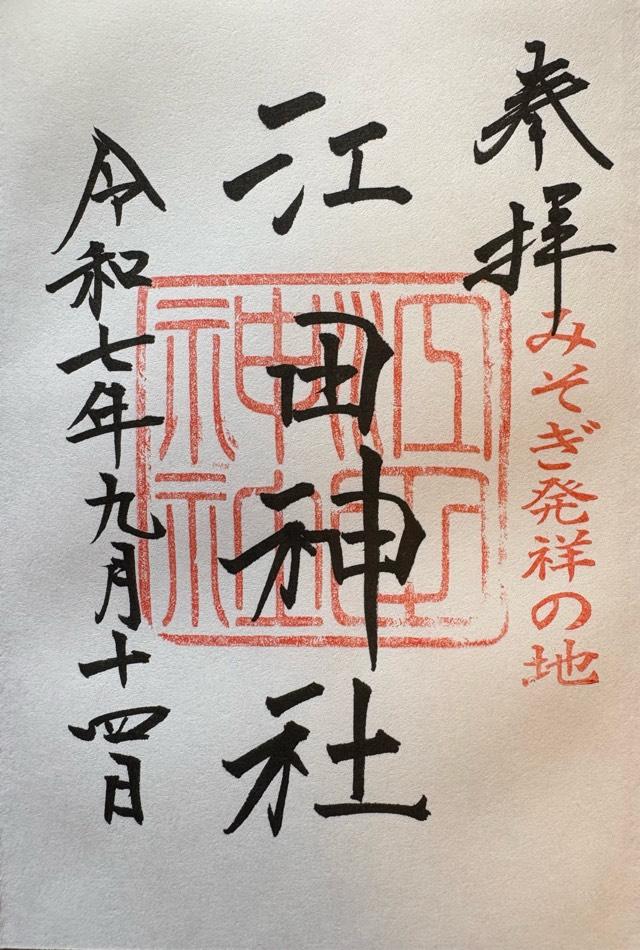 奉拝
みそぎ発祥の地
江田神社
江田神社
令和七年九月十四日